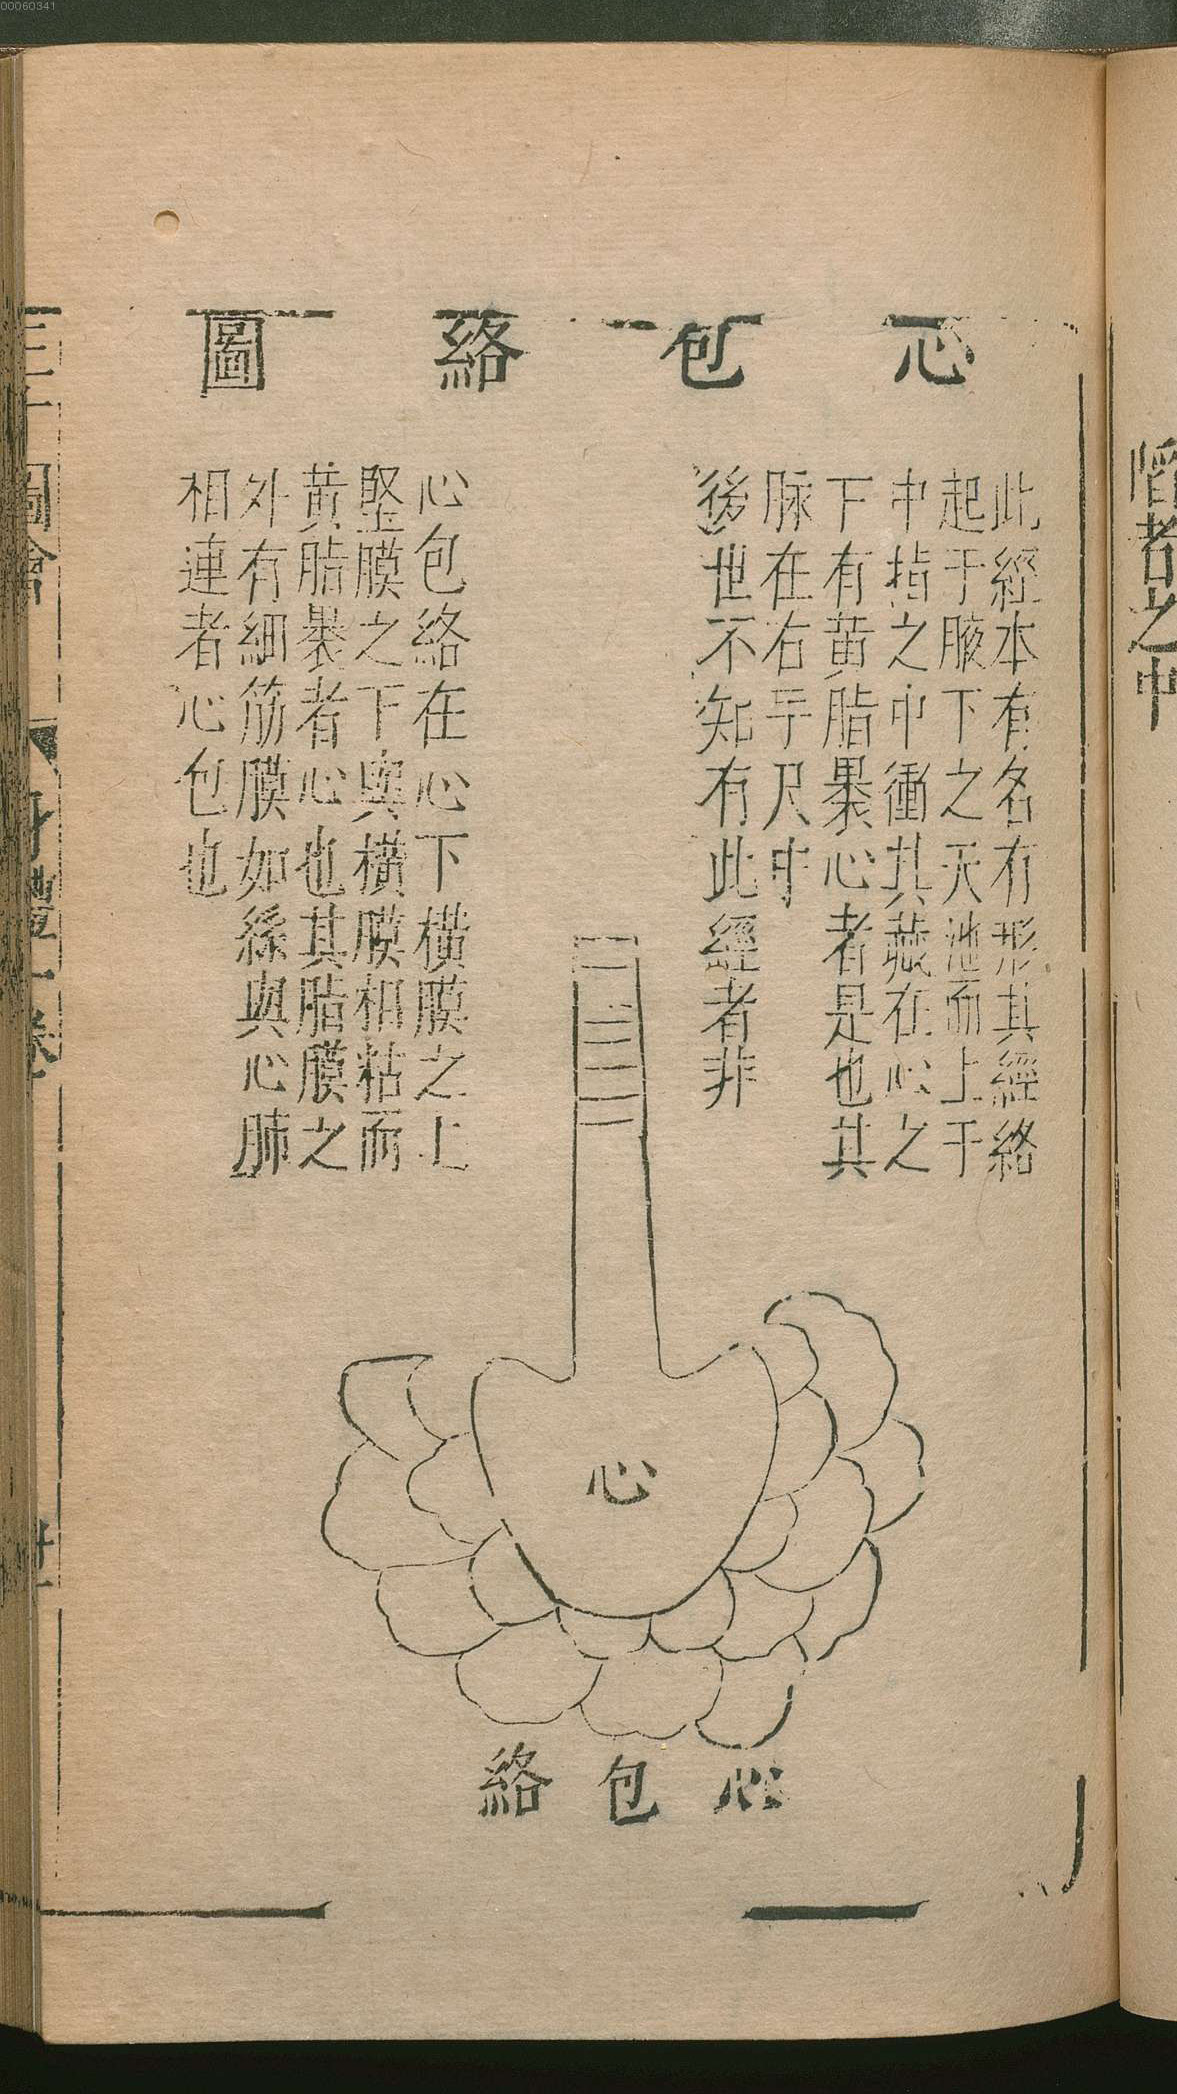 00060341
陷者之中
心包絡圖
此經本有名有形其經絡
起于腋下之天池而上于
中指之中衝其藏在心之
下有黃脂裹心者是也其
脉在右手尺中
後世不知有此經者非
心包絡在心下橫膜之上
堅膜之下與橫膜相粘而
黃脂裹者心也其脂膜之
外有細筋膜如絲與心肺
相連者心包也
心
心包絡
三才圖會
身體一卷